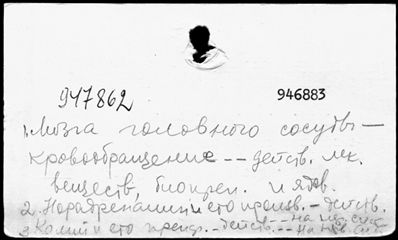 947862
946883
1. Мозга головного сосуды –
кровообращение -- действ. лек.
веществ, биопреп. и ядов.
2. Норадреналин и его произв. – действ.
3. Калий и его преп. – действ. -- на